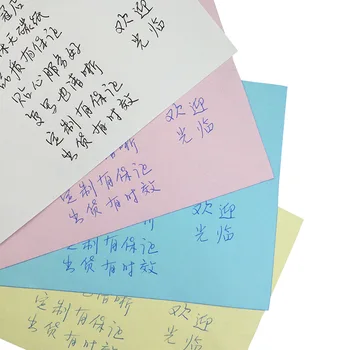 冠店
无碳纸
品质有保证
贴心服务好
复写也清晰
定制有保证
出货有时效
欢迎
光临
清晰
定制有保证
出货有时效
欢迎
光临
定制有保证
出货有时效
欢迎
光临
清晰
定制有保证
出货有时效
欢迎
光临